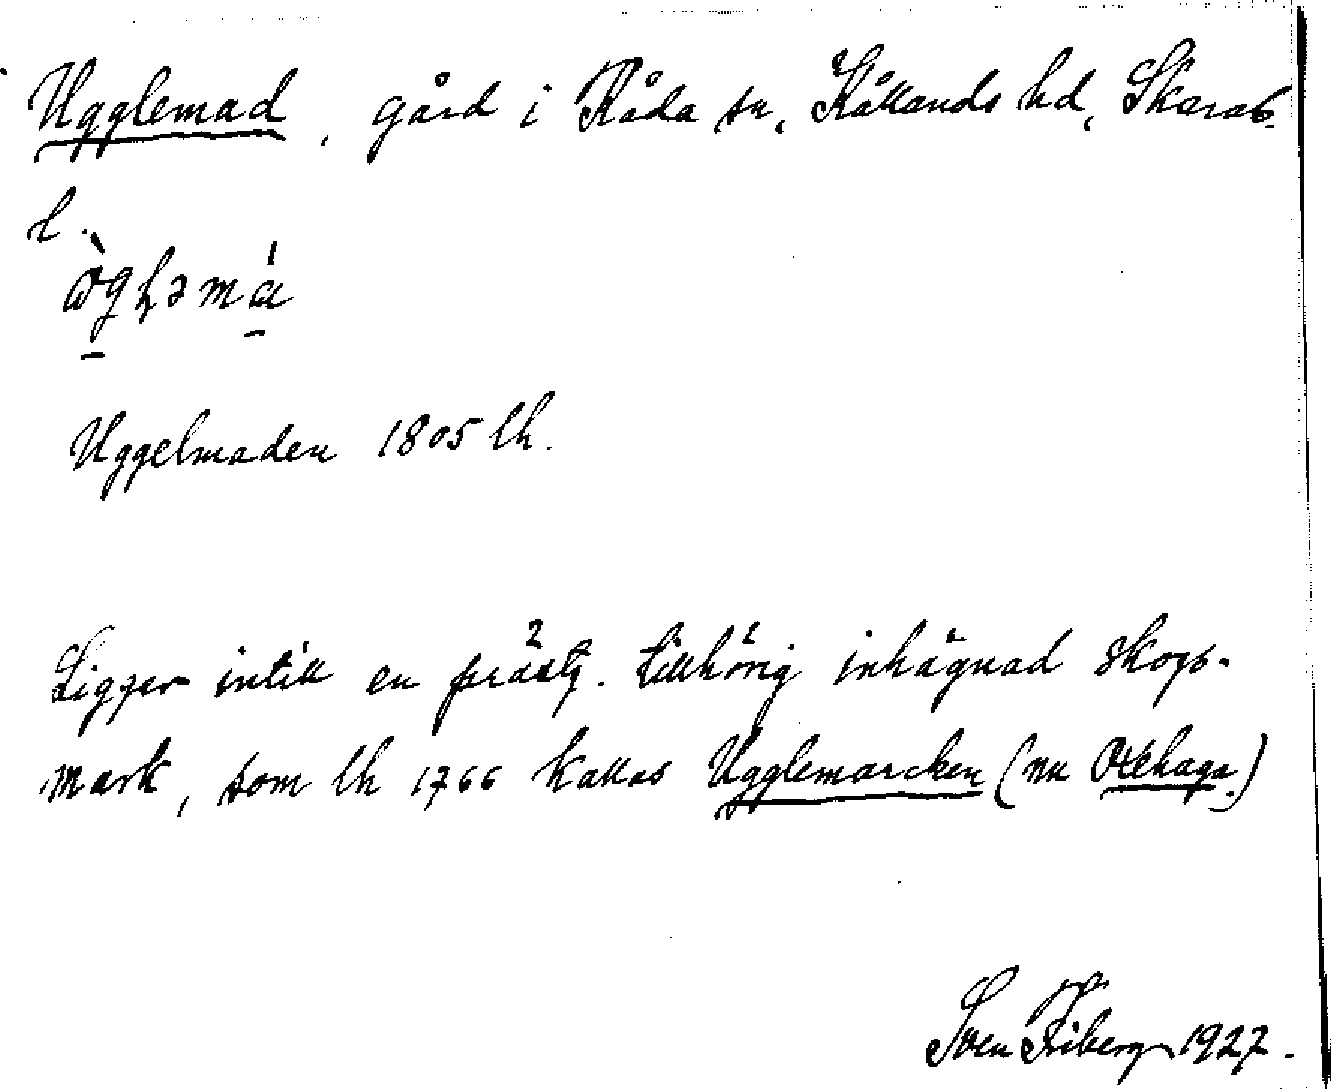 Ugglemad, gård i Råda sn, Kållands hd, Skarab.
l.
ὼgꞎəmá
Uggelmaden 1805 lh.
Ligger intill en prästg. tillhörig inhägnad skogs-
mark, som lh 1766 kallas Ugglemarcken (nu Otehaga.)
Sven Friberg 1927.